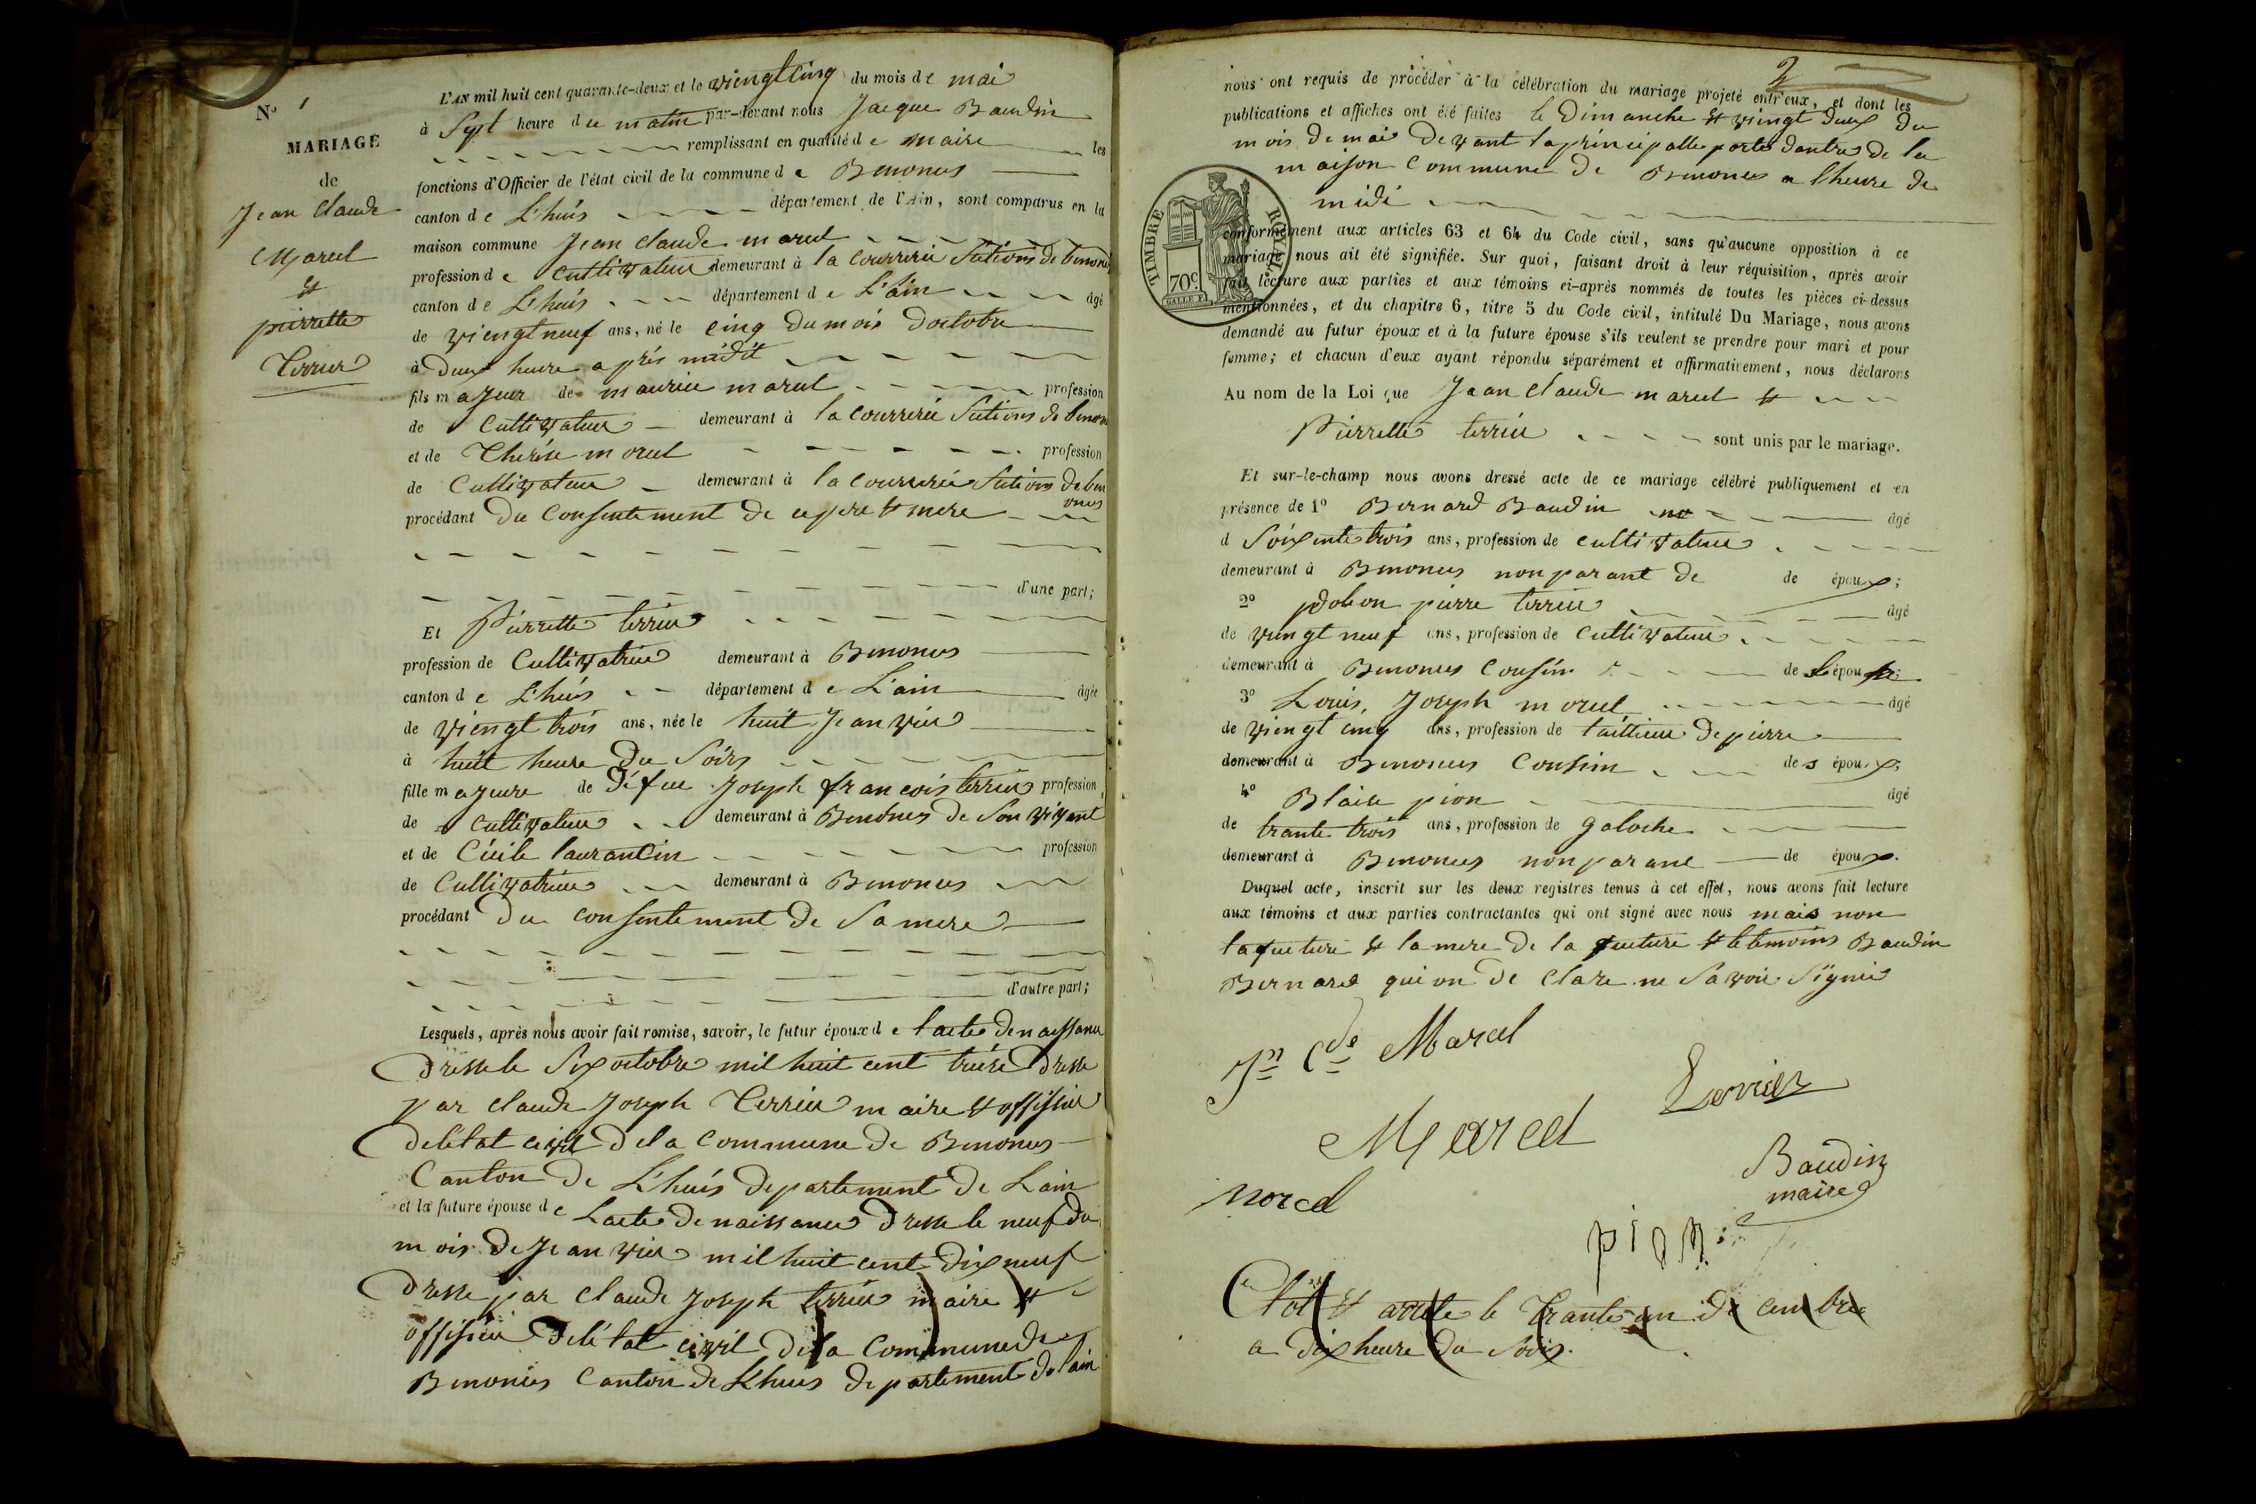 N.o 1
MARIAGE
de
Jean Claude
Marcel
et
pierrette
Terrier
L'AN mil huit cent quarante-deux et le viengtcinq du mois de mai
à Sept heure du matin par-devant nous Jacque Baudin
remplissant en qualité de maire les
fonctions d'Officier de l'état civil de la commune de Benonces
canton de L'huis département de l'Ain, sont comparus en la
maison commune Jean Claude marcel
profession de Cultivateur demeurant à la Courrerie de benonces
canton de L'huis département de L'ain âgé
de viengtneuf ans, né le cinq du mois d'octobre
à deux heure après midit
fils majeur de maurice marcel profession
de Cultivateur demeurant à la Courrerie
et de Therése morel profession
de Cultivateur demeurant à la Courrerie de ben
onces
procédant Du Consentement de ce pere et mere
d'une part;
Et Pierrette terrier
profession de Cultivatrice demeurant à Benonces
canton de L'huis département de L'ain âgée
de viengt trois ans, née le huit Jeanvier
à huit heure du Soirs
fille majeure de défun Joseph françois terrier profession
de Cultivateur demeurant à Benonces de Son vivant
et de Cécile laurancin profession
de Cultivatrice demeurant à Benonces
procédant Du consentement de Sa mere
d'autre part;
Lesquels, après nous avoir fait remise, savoir, le futur époux de l'acte de naissance
dresse le Six octobre mil huit cent treise dresse
par claude Joseph Terrier maire et offisier
de létat civil de la Commune de Benonces
Canton de L'huis departement de Lain
et la future épouse de Lacte de naissance dresse le neuf du
mois de Jeanvier mil huit cent dix neuf
dresse par claude Joseph terrier maire et
offisier de létat civil de la Commune de
Benonces Canton de Lhuis departement de lain
2
nous ont requis de procéder à la célébration du mariage projeté entr'eux, et dont les
publications et affiches ont été faites le Dimanche et vingt deux du
mois de mai devant la principalle porte dantre de la
maison Commune de Benonces a lheure de
midi
TIMBRE ROYAL
70c
conformément aux articles 63 et 64 du Code civil, sans qu'aucune opposition à ce
mariage nous ait été signifiée. Sur quoi, faisant droit à leur réquisition, après avoir
fait lecture aux parties et aux témoins ci-après nommés de toutes les pièces ci-dessus
mentionnées, et du chapitre 6, titre 5 du Code civil, intitulé Du Mariage, nous avons
demandé au futur époux et à la future épouse s'ils veulent se prendre pour mari et pour
femme; et chacun d'eux ayant répondu séparément et affirmativement, nous déclarons
Au nom de la Loi que Jean Claude marcel et
Pierrette terrier sont unis par le mariage.
Et sur-le-champ nous avons dressé acte de ce mariage célébré publiquement et en
présence de 1o Bernard Baudin âgé
d Soixente trois ans, profession de cultivateur
demeurant à Benonces non parant de de époux;
2o pierre terrier âgé
de viengt neuf ans, profession de Cultivateur
demeurant à Benonces Cousin de
3o Louis, Joseph morel âgé
de viengt cinq ans, profession de taillieur de pierre
demeurant à Benonces Coussin des époux;
4o Blaise pion âgé
de trante trois ans, profession de galoche
demeurant à Benonces non parant de époux.
Duquel acte, inscrit sur les deux registres tenus à cet effet, nous avons fait lecture
aux témoins et aux parties contractantes qui ont signé avec nous mais non
la futture et la mere de la futture et le temoins Baudin
Bernard qui on de Clare ne Savoir Signier
Jn Cde Marcel
Terrier
Marcel
Baudin
maire
morel
pion
Clot et arrete le trante un decembre
a dix heure du Soir.